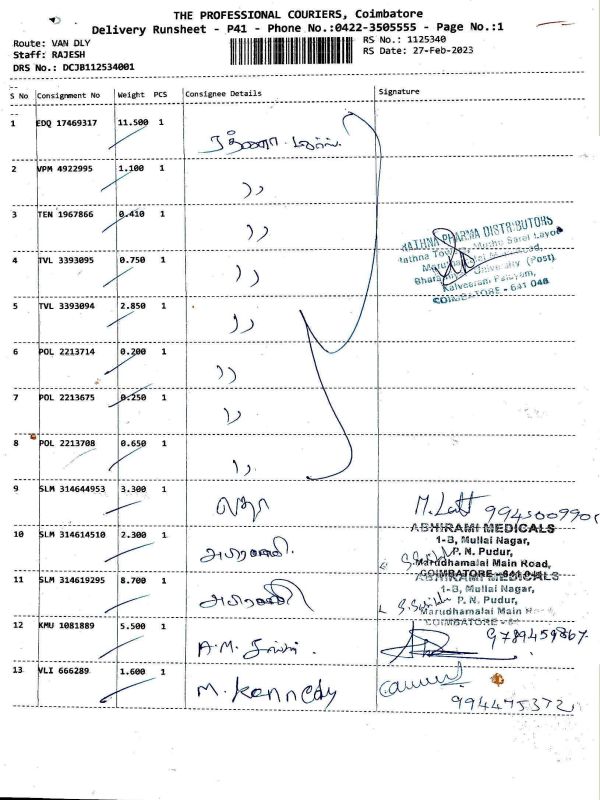 THE PROFESSIONAL COURIERS, Coimbatore
Delivery Runsheet - P41 - Phone No.:0422-3505555 - Page No.:1
Route: VAN DLY
RS No.: 1125340
Staff: RAJESH
RS Date: 27-Feb-2023
DRS No.: DCJB112534001
S No Consignment No Weight PCS Consignee Details Signature
1 EDQ 17469317 11.500 1
2 VPM 4922995 1.100 1 ))
3 TEN 1967866 0.410 1 ))
RATHNA PHARMA DISTRIBUTORS
4 TVL 3393095 0.750 1 ))
(Post)
COIMBATORE - 641 046
5 TVL 3393094 2.850 1 ))
6 POL 2213714 0.200 1 ))
7 POL 2213675 0.250 1 ))
8 POL 2213708 0.650 1 ))
9 SLM 314644953 3.300 1
ABHIRAMI MEDICALS
10 SLM 314614510 2.300 1 அபிராமி. 1-B, Mullai Nagar,
P. N. Pudur,
Marudhamalai Main Road,
COIMBATORE - 641 041
ABHIRAMI MEDICALS
11 SLM 314619295 8.700 1 அபிராமி 1-B, Mullai Nagar,
P. N. Pudur,
Marudhamalai Main
COIMBATORE
12 KMU 1081889 5.500 1 A.M. 9789459867
13 VLI 666289 1.600 1 M. Kennedy
9944753721